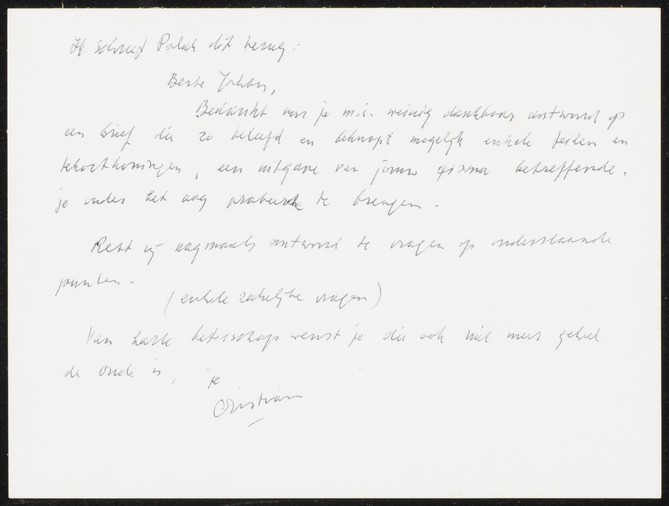 Ik schreef Polak dit terug:
Beste Johan,
Bedankt voor je m.i. weinig dankbaar antwoord op
een brief die zo beleefd en beknopt mogelijk enkele feiten en
tekortkomingen, een uitgave van jouw firma betreffende,
je onder het oog probeerde te brengen.
Rest mij nogmaals antwoord te vragen op onderstaande
punten:
(enkele zakelijke vragen)
Van harte beterschap wenst je die ook niet meer geheel
de oude is, je
Cristian